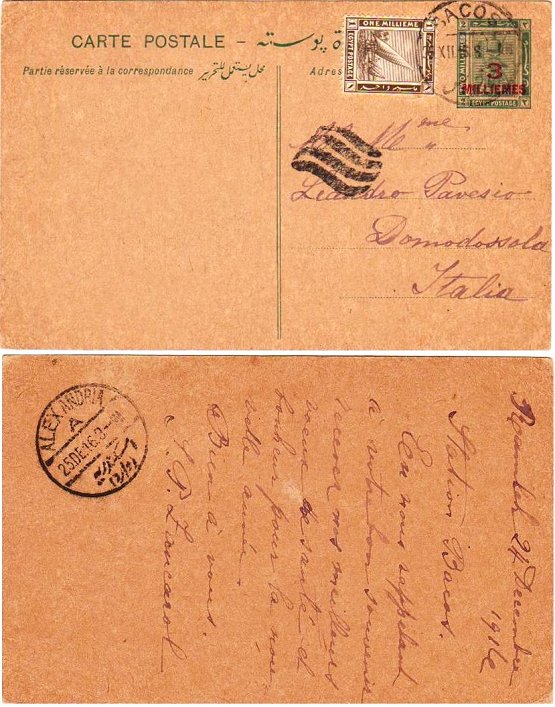 CARTE POSTALE - تذكرة بوسته
Partie réservée à la correspondance محل يستعمل للتحرير
Adres
ONE MILLIEME
EGYPT POSTAGE
BACOS
XII
3
MILLIEMES
EGYPTE POSTAGE
M^me
Leandro Pavesio
Domodossola
Italia
ALEXANDRIA
A
25 DE 16. 8
Ramleh 24 December
1916
Station Bacos.
En nous rappelant
à votre bon souvenir
recevez nos meilleurs
voeux de santé et
bonheur pour la nou-
velle année.
Bien à vous.